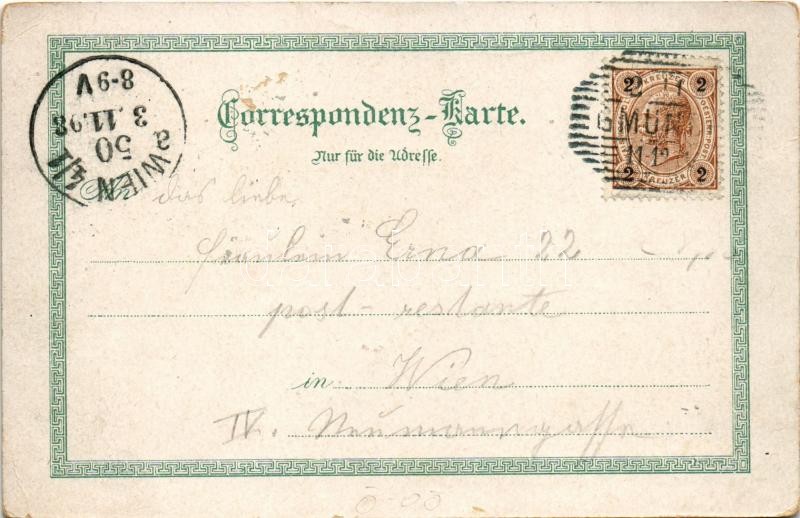 Correspondenz-Karte.
Nur für die Adresse.
WIEN 4/1
50
3.11.98
8-9V
a
2 KREUZER 2
GMUN
2 KREUZER 2
An das liebe
Fräulein Erna 22
post-restante
in Wien
IV. Neumanngasse